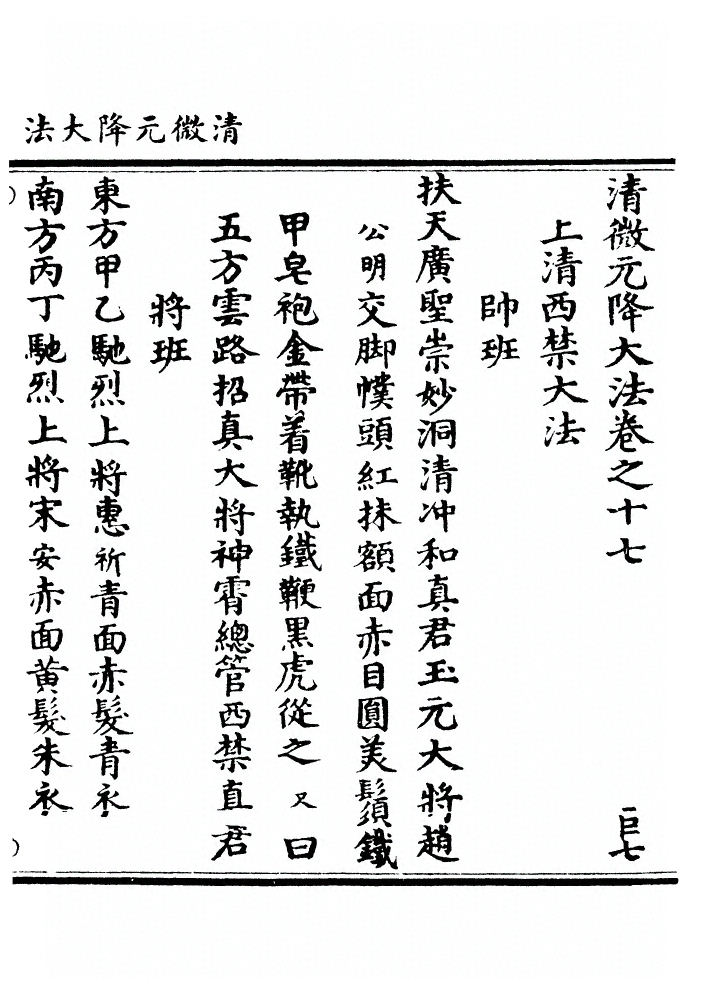 清微元降大法
清微元降大法卷之十七
巨七
上清西禁大法
帥班
扶天廣聖崇妙洞清冲和真君玉元大將趙
公明交脚幞頭紅抹額面赤目圓美鬚鐵
甲皂袍金帶着靴執鐵鞭黑虎從之又曰
五方雲路招真大將神霄總管西禁直君
將班
東方甲乙馳烈上將惠祈青面赤髮青衣
南方丙丁馳烈上將宋安赤面黃髮朱衣